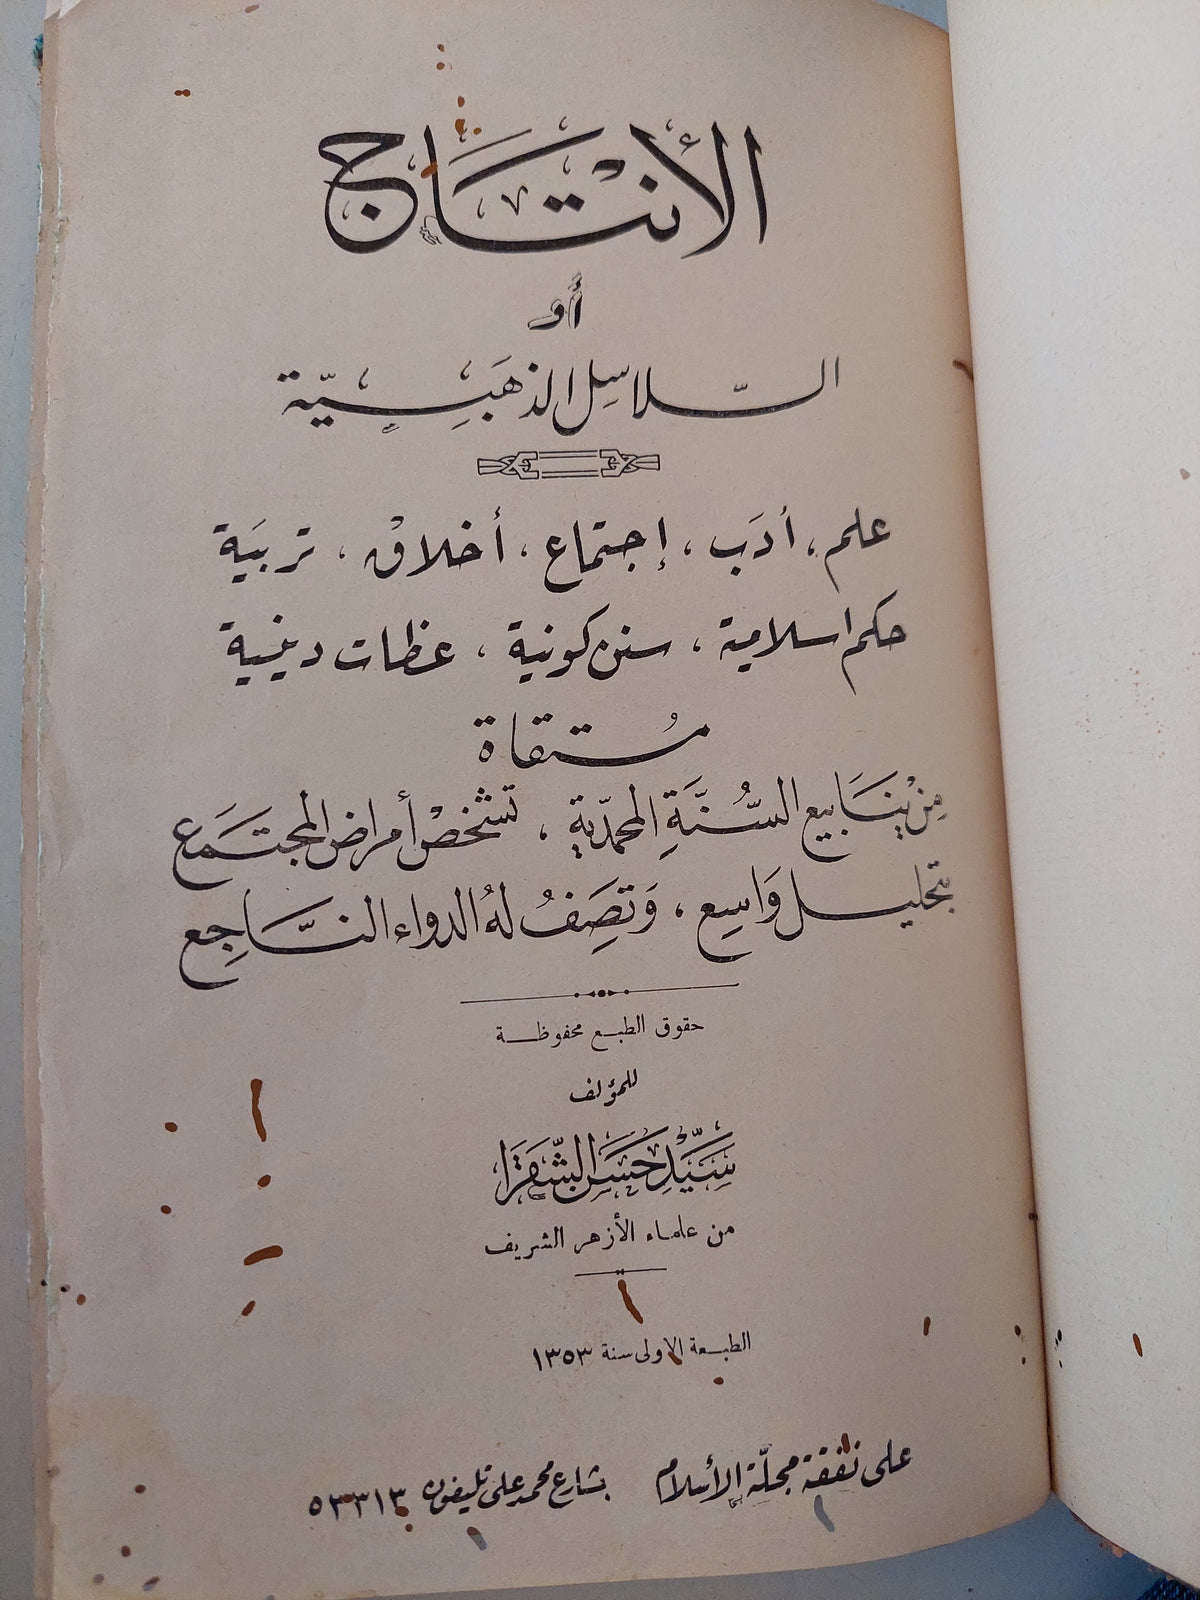 الأنتاج
أو
السّلاسِل الذهَبيّة
علم ، أدَب ، إجتماع ، أخلاق ، تربيَة
حكم اسلامية ، سنن كونية ، عظات دينية
مُستقاة
مِنْ يَنَابيع السُّنَّةِ المحمدّية ، تشخصْ أمراض المجتَمَع
بتحليل وَاسِع ، وَتصِفُ لهُ الدواء النَّاجِع
حقوق الطبع محفوظة
للمؤلف
سَيِّدْ حَسَن الشَّقرَا
من علماء الأزهر الشريف
الطبعة الاولى سنة ١٣٥٣
على نفقة مجلّة الأسلام بشارع محمد على تليفون ٥٣٣١٣